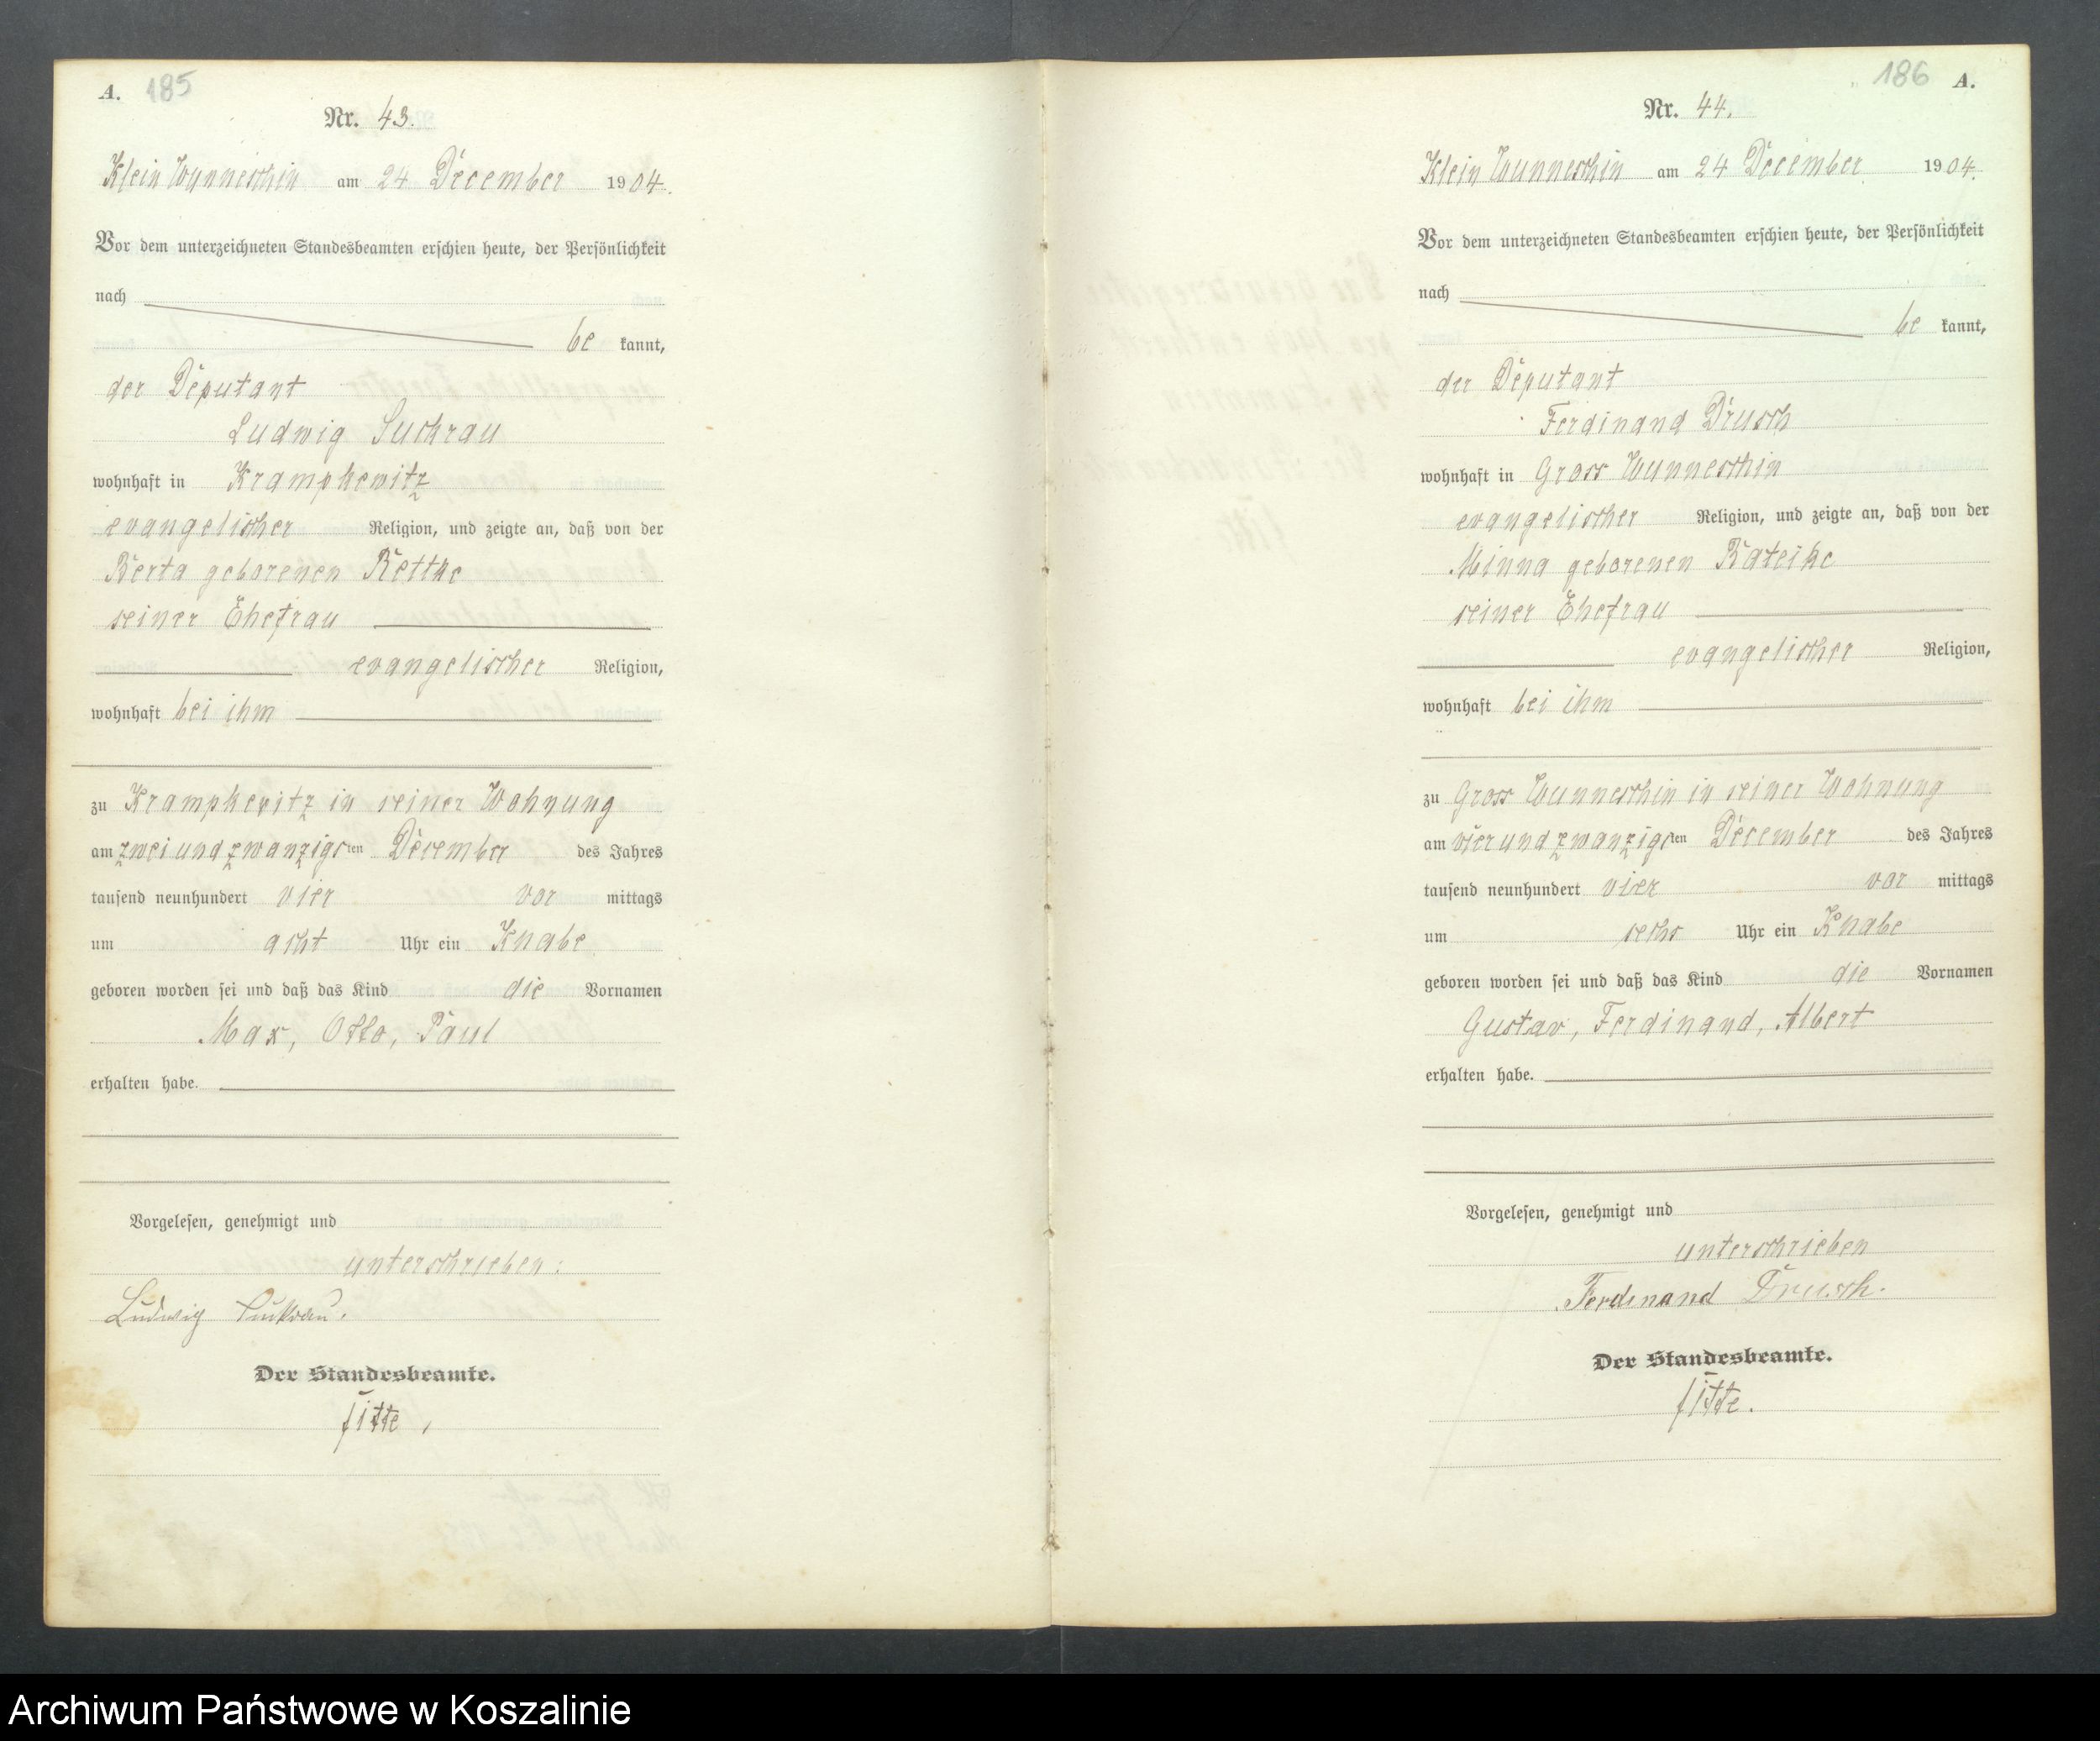 A. 185
Nr. 43.
Klein Wunneschin am 24 December 1904.
Vor dem unterzeichneten Standesbeamten erschien heute, der Persönlichkeit
nach
be kannt,
der Deputant
Ludwig Suckrau
wohnhaft in Krampkewitz
evangelischer Religion, und zeigte an, daß von der
Berta geborenen Rettke
seiner Ehefrau
evangelischer Religion,
wohnhaft bei ihm
zu Krampkewitz in seiner Wohnung
am zweiundzwanzigsten December des Jahres
tausend neunhundert vier vor mittags
um acht Uhr ein Knabe
geboren worden sei und daß das Kind die Vornamen
Max, Otto, Paul
erhalten habe.
Vorgelesen, genehmigt und
unterschrieben:
Ludwig Suckrau.
Der Standesbeamte.
186 A.
Nr. 44.
Klein Wunneschin am 24 December 1904.
Vor dem unterzeichneten Standesbeamten erschien heute, der Persönlichkeit
nach
be kannt,
der Deputant
Ferdinand Drusch
wohnhaft in Gross Wunneschin
evangelischer Religion, und zeigte an, daß von der
Minna geborenen Rateike
seiner Ehefrau
evangelischer Religion,
wohnhaft bei ihm
zu Gross Wunneschin in seiner Wohnung
am vierundzwanzigsten December des Jahres
tausend neunhundert vier vor mittags
um sechs Uhr ein Knabe
geboren worden sei und daß das Kind die Vornamen
Gustav, Ferdinand, Albert
erhalten habe.
Vorgelesen, genehmigt und
unterschrieben
Ferdinand Drusch.
Der Standesbeamte.
Archiwum Państwowe w Koszalinie